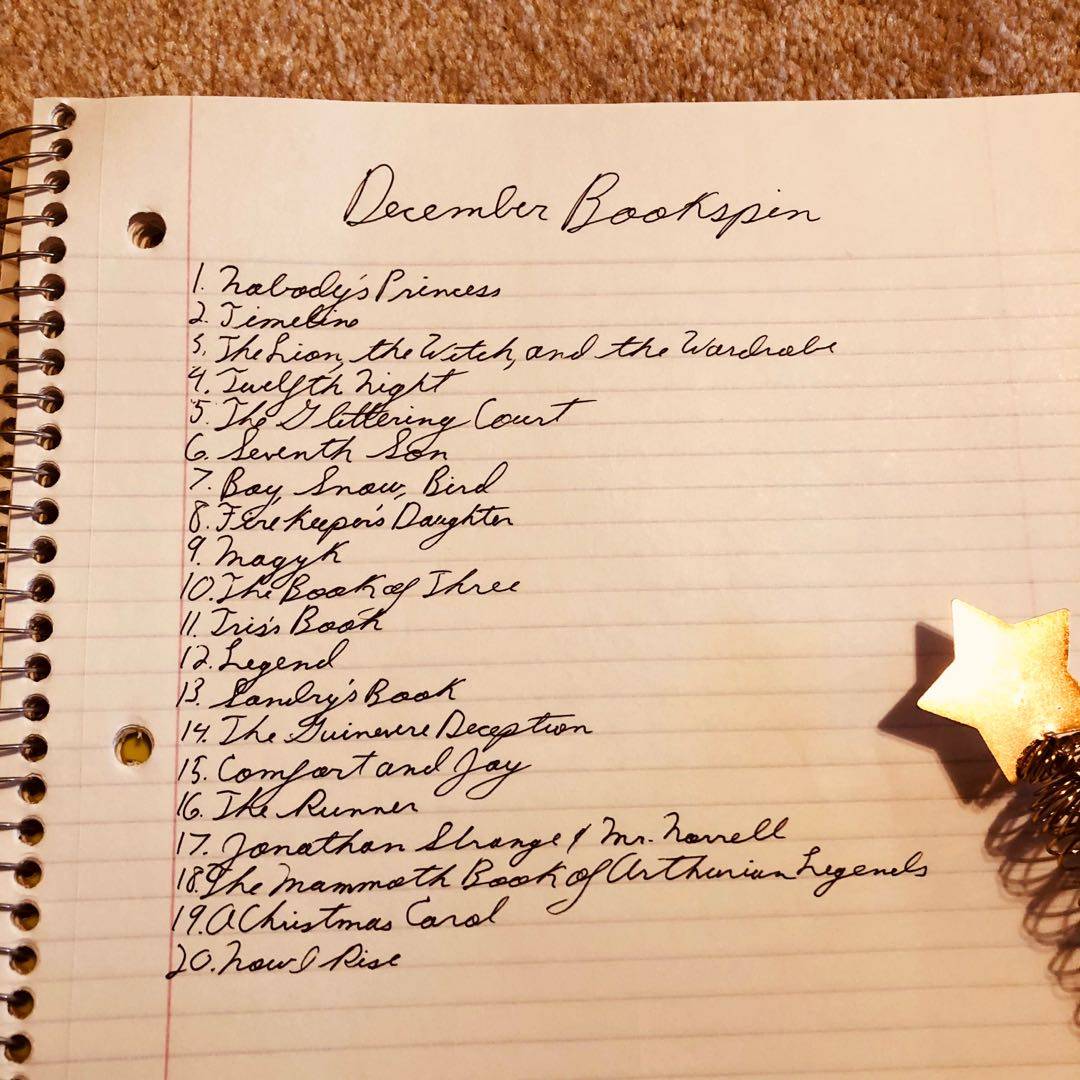 December Bookspin
1. Nobody's Princess
2. Timeline
3. The Lion, the Witch, and the Wardrobe
4. Twelfth Night
5. The Glittering Court
6. Seventh Son
7. Boy, Snow, Bird
8. Firekeeper's Daughter
9. Magyk
10. The Book of Three
11. Tris's Book
12. Legend
13. Sandry's Book
14. The Guinevere Deception
15. Comfort and Joy
16. The Runner
17. Jonathan Strange & Mr. Norrell
18. The Mammoth Book of Arthurian Legends
19. A Christmas Carol
20. Now I Rise